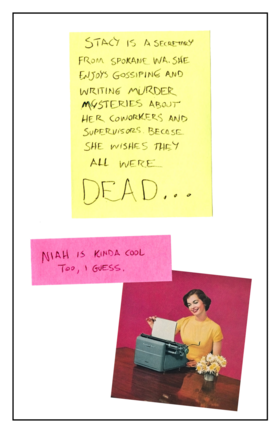 STACY IS A SECRETARY
FROM SPOKANE WA. SHE
ENJOYS GOSSIPING AND
WRITING MURDER
MYSTERIES ABOUT
HER COWORKERS AND
SUPERVISORS. BECOSE
SHE WISHES THEY
ALL WERE
DEAD...
NIAH IS KINDA COOL
TOO, I GUESS.